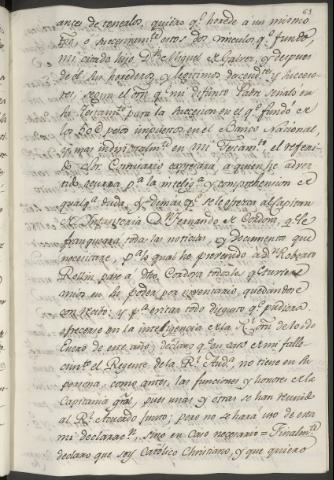 63
antes de tenerlos, quiero qe. herede a un mismo
tpo. o succesivamte. estos dos vinculos qe. fundo,
mi citado hijo Dn. Miguel de Galvez, y despues
de el sus herederos y legitimos descendtes. y succeso-
res, segun el orn. qe. mi difunto Padre señaló en
su testamto. para la succesion en el qe. fundó de
los 50 @ pesos impuestos en el Banco Nacional,
y mas individualmte. en mi testamto. el referi-
do Sor. Comisario expresará, a quien he adver-
tido ocurra pa. la inteliga. y comprehension de
qualqa. duda, y demas qe. se le ofrezca al Capitan
de Infanteria Dn. Fernando de Cordova, qe. le
franqueará todas las noticias, y documentos que
necesitare, pa. lo qual he prevenido a dn. Roberto
Rellin pase a dho. Cordova todos los qe.
mios en su poder por inventario, quedandose
con recibo; y pa. evitar todo disputa qe. pudiera
ofrecerse en la inteligencia de la Rl. Orn. de
Enero de este año, declaro qe. en caso de mi falle-
cimto. el Regente de la Rl. Auda. no tiene en su
persona, como antes, las funciones y honores de la
Capitania gral., pues unas y otras se han reunido
al Rl. Acuerdo junto; pero no se hará uso de esta
mi declaracn. sino en caso necesario = Finalmte.
declaro que soy Catolico Christiano, y que quiero